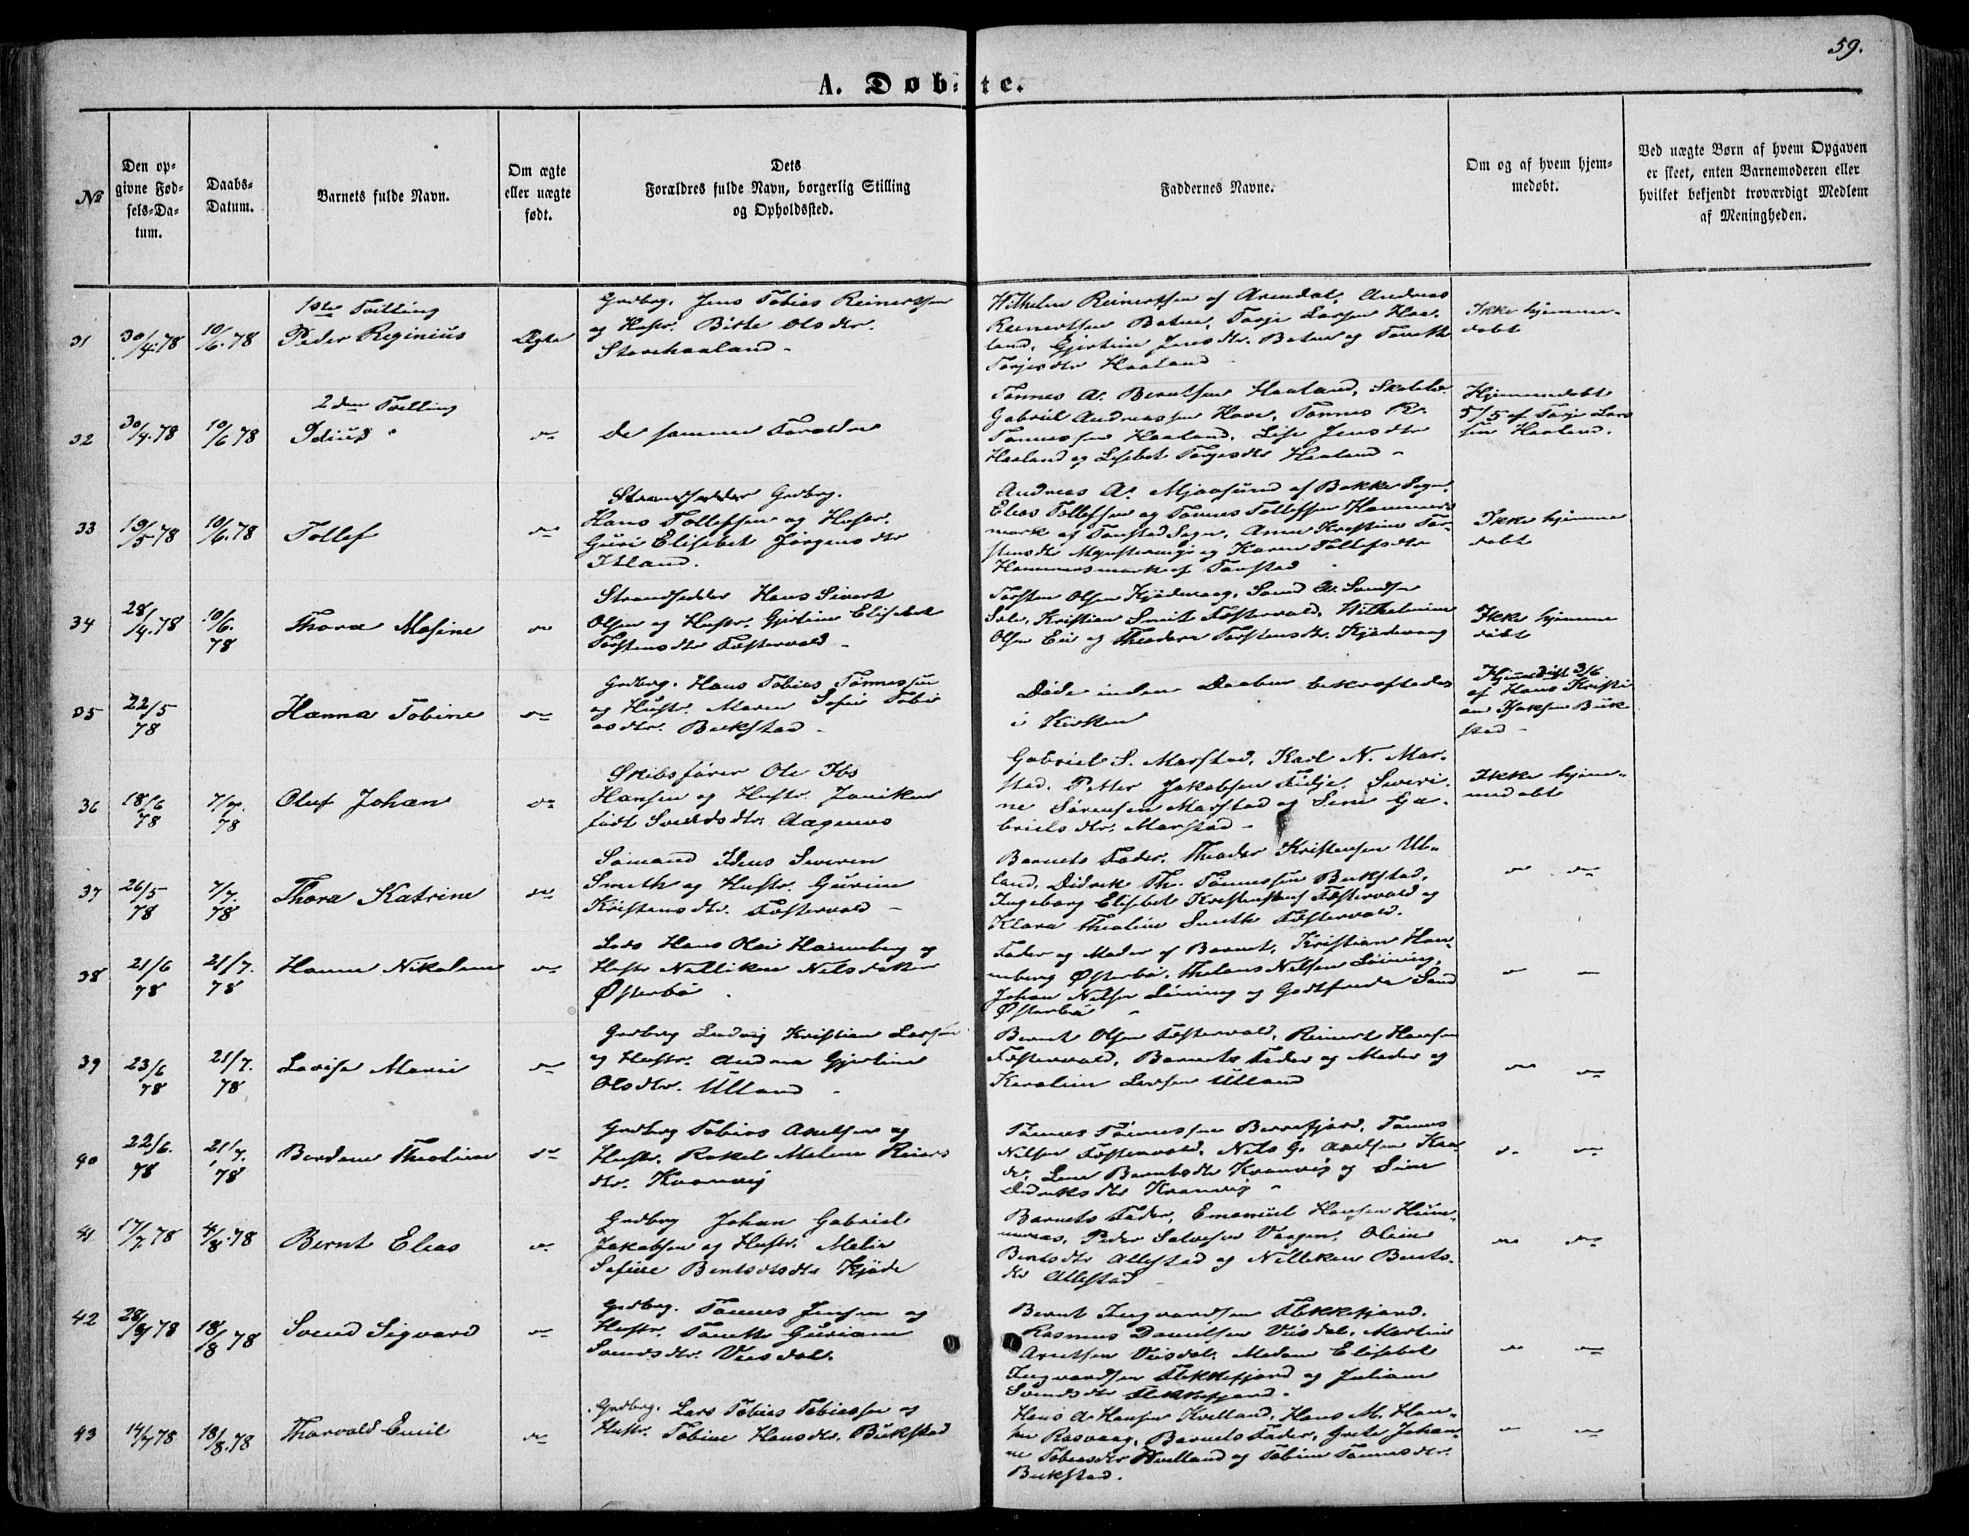 59.
A. Døbte.
№
Den op-
givne Fød-
sels-Da-
tum.
Daabs-
Datum.
Barnets fulde Navn.
Om ægte
eller uægte
født.
Dets
Forældres fulde Navn, borgerlig Stilling
og Opholdssted.
Faddernes Navne.
Om og af hvem hjem-
medøbt.
Ved uægte Børn af hvem Opgaven
er skeet, enten Barnemoderen eller
hvilket bekjendt troværdigt Medlem
af Menigheden.
31
30/4.78
10/6.78
1ste Tvilling
Peder Reginius
Ægte
Grdbrg. Jens Tobias Reinertsen
og Hustr. Birte Olsdtr.
Storehaaland
Wilhelm Reinertsen af Arendal, Andreas
Reinertsen Batne, Tarje Larsen Haa-
land, Gjertine Jensdtr. Batne og Tonette
Tarjesdtr Haaland
Ikke hjemme-
døbt
32
30/4.78
10/6 78
2den Tvilling
Idius
do
de samme Forældre
Tønnes A. Berntsen Haaland,
Gabriel Andreassen Hove, Tønnes R.
Tønnessen Haaland, Lise Jensdtr
Haaland og Lisebet Tarjesdtr Haaland
Hjemmedøbt
5/5 af Tarje Lar-
sen Haaland.
33
19/5.78
10/6.78
Tollef
do
Strandsidder Grdbrg.
Hans Tollefsen og Hustr.
Guri Elisabet Jørgensdtr
Itland.
Andreas A. Mjaasund af Bakke Sogn,
Elias Tollefsen og Tønnes Tollefsen Hammers-
mark af Tonstad Sogn, Anne Kristine Tor-
stensdtr og Karen Tollefsdtr
Hammersmark af Tonstad
Ikke hjemme
døbt
34
28/4.78
10/6.
78
Thora Mosine
do
Strandsidder Hans Sivert
Olsen og Hustr. Gjertine Elisabet
Torstensdtr Fostervold
Torsten Olsen Kjødevaag, Sand A. Sandsen
Sole, Kristian Smit Fostervold, Wilhelmine
Olsen Eie og Theodora Torstensdtr. Kjødevaag
Ikke hjemme
døbt
35
22/5
78
Hanna Tobine
do
Grdbrg. Hans Tobias Tønnessen
og Hustr. Maren Sofie Tobi
asdtr. Bukstad
Døde inden Daaben bekræftedes
i Kirken
Hjemmedøbt 3/6
af Hans Kristi
an Isaksen Buk
stad
36
18/6
78
7/7.
78
Oluf Johan
do
Skibsfører Ole Ibs
Hansen og Hustr. Janiken
født Svendsdtr. Aagenes
Gabriel S. Marstad, Karl N. Mar-
stad, Petter Jakobsen Fidje, Severi-
ne Sørensen Marstad og Lene Ga-
brielsdtr. Marstad
Ikke hjem-
medøbt
37
26/5
78
7/7.
78
Thora Katrine
do
Sømand Ideus Severin
Smith og Hustr. Gurine
Kristensdtr. Fostervold
Barnets Fader, Theodor Kristensen Ul-
land, Didrik Th. Tønnessen Bukstad,
Ingeborg Elisabet Kristensen Fostervold og
Klara Theoline Smith Fostervold.
do do
38
21/6
78
21/7.
78
Hanne Nikoline
do
Lods Hans Olai Hamneberg og
Hustr Nelliken Nilsdatter
Østerbø
Fader og Moder af Barnet, Kristian Ham-
neberg Østerbø, Nilsen Løining,
Johan Nilsen Løining og Godtfreda Sand
Østerbø
39
23/6
78
21/7.
78
Lovise Marie
do
Grdbrg Ludvig Kristian Larsen
og Hustr. Andrea Gjertine
Olsdtr. Ulland
Bernt Olsen Fostervold, Reinert Hansen
Fostervold, Barnets Fader og Moder og
Karoline Larsen Ulland
do do
40
22/6.
78
21/7.
78
Bordine Theoline
do
Grdbrg Tobias Axelsen og
Hustr. Rakel Malene Reiers
dtr. Kvanvig
Tønnes Tønnessen Berrefjord, Tønnes
Nilsen Fostervold, Nils G. Axelsen
Lene Berntsdtr Kvanvig og Sine
Didriksdtr Kvanvig
do do
41
17/7.78
4/8.78
Bernt Elias
do
Grdbrg Johan Gabriel
Jakobsen og Hustr. Malie
Sofiere Bentsdtr Kjøde
Barnets Fader, Emanuel Hansen
Peder Salvesen Vaagen, Oline
Bentsdtr Allestad og Nelliken Bents-
dtr Allestad
do do
42
28/ 78
18/8 78
Svend Sigvard
do
Grdbrg. Tønnes Jensen og
Hustr. Tonette Guriane
Svendsdtr. Veisdal.
Bernt Ingvardsen Flekkefjord,
Rasmus Danielsen Veisdal, Martin
Arntsen Veisdal, Madam Elisabet
Ingvardsen Flekkefjord og Juliane
Svendsdtr Flekkefjord.
do do
43
14/7 78
18/8.78
Thorvald Emil
do
Grdbrg. Lars Tobias Tobiassen og
Hustr. Tobine Hansdtr. Bukstad
Hans A. Hansen Kvelland, Hans M. Han-
sen Rasvaag, Barnets Fader, Grete Johan-
ne Tobiasdtr Kvelland og Tobine Tønnesdtr.
Bukstad.
do do